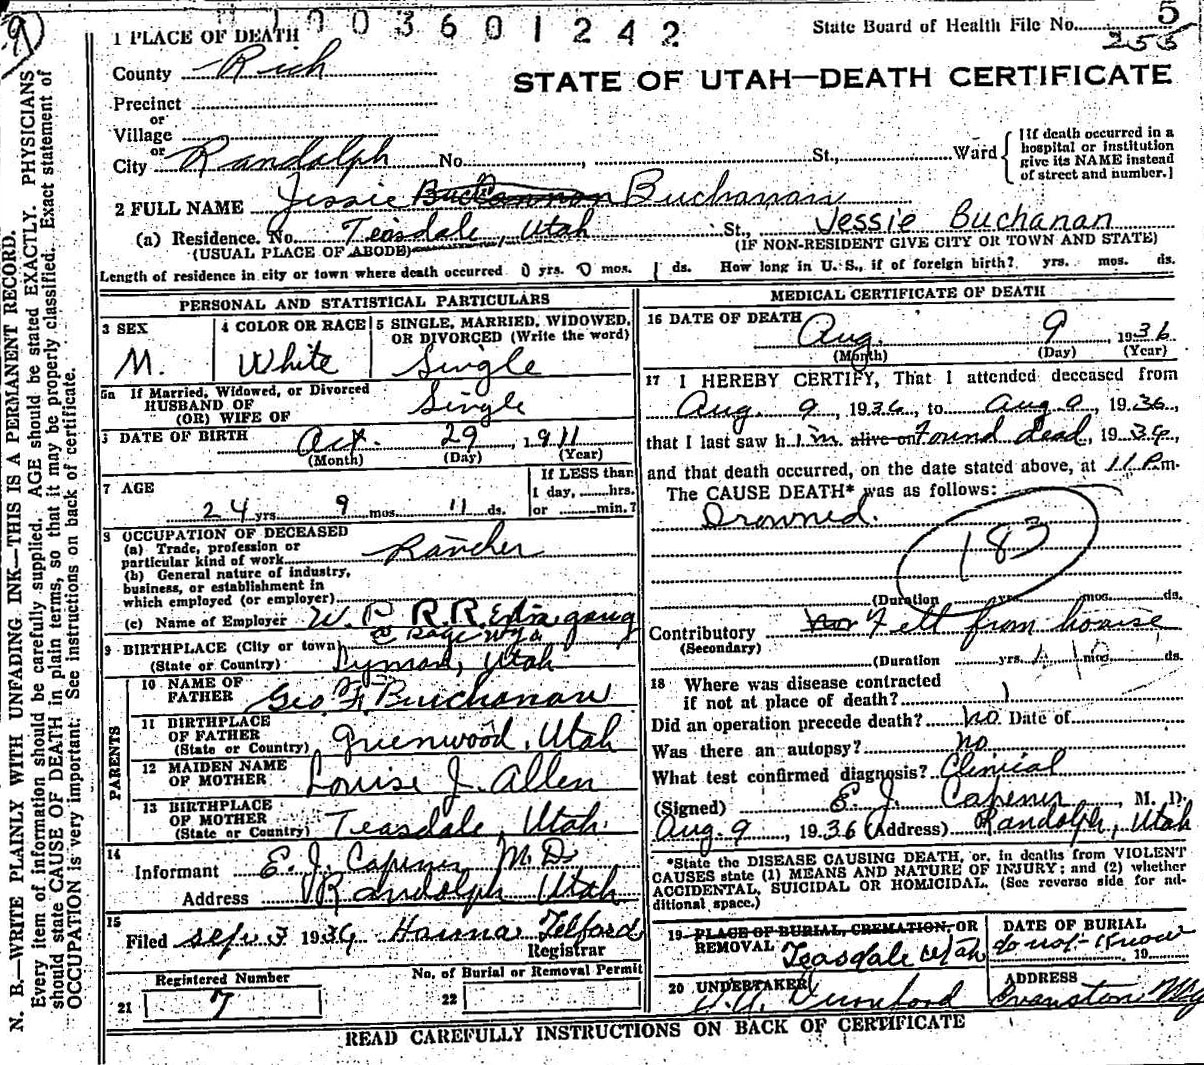 1003601242
State Board of Health File No. 5
255
1 PLACE OF DEATH
County Rich
STATE OF UTAH—DEATH CERTIFICATE
Precinct
or
Village
or
City Randolph No. , St., Ward
[If death occurred in a hospital or institution give its NAME instead of street and number.]
2 FULL NAME Jessie Buchanan
(a) Residence. No. Teasdale, Utah St., Jessie Buchanan
(USUAL PLACE OF ABODE) (IF NON-RESIDENT GIVE CITY OR TOWN AND STATE)
Length of residence in city or town where death occurred 0 yrs. 0 mos. 1 ds. How long in U. S., if of foreign birth? yrs. mos. ds.
PERSONAL AND STATISTICAL PARTICULARS
3 SEX
M.
4 COLOR OR RACE
White
5 SINGLE, MARRIED, WIDOWED, OR DIVORCED (Write the word)
Single
5a If Married, Widowed, or Divorced
HUSBAND OF
(OR) WIFE OF
Single
DATE OF BIRTH Oct. 29 1911
(Month) (Day) (Year)
7 AGE
24 yrs. 9 mos. 11 ds.
If LESS than
1 day, hrs.
or min.?
8 OCCUPATION OF DECEASED
(a) Trade, profession or
particular kind of work Rancher
(b) General nature of industry,
business, or establishment in
which employed (or employer)
(c) Name of Employer W. P. R. R. Extra gang
@ Sage Wyo
9 BIRTHPLACE (City or town)
(State or Country) Lyman, Utah
PARENTS
10 NAME OF
FATHER Geo F. Buchanan
11 BIRTHPLACE
OF FATHER
(State or Country) Greenwood, Utah
12 MAIDEN NAME
OF MOTHER Louise J. Allen
13 BIRTHPLACE
OF MOTHER
(State or Country) Teasdale, Utah.
14
Informant E. J. Capener M.D.
Address Randolph Utah
15
Filed Sep. 3 1936 Telford
Registrar
Registered Number
21 7
No. of Burial or Removal Permit
22
MEDICAL CERTIFICATE OF DEATH
16 DATE OF DEATH
Aug. 9 1936
(Month) (Day) (Year)
17 I HEREBY CERTIFY, That I attended deceased from
Aug. 9, 1936, to Aug 9, 1936,
that I last saw him alive on Found dead, 1936,
and that death occurred, on the date stated above, at 11 P.m.
The CAUSE DEATH* was as follows:
Drowned.
183
(Duration yrs. mos. ds.
Contributory Fell from
(Secondary)
(Duration yrs. mos. ds.
18 Where was disease contracted
if not at place of death?
Did an operation precede death? no Date of
Was there an autopsy? no
What test confirmed diagnosis? Clinical
(Signed) E. J. Capener, M. D.
Aug. 9, 1936 (Address) Randolph, Utah
*State the DISEASE CAUSING DEATH, or, in deaths from VIOLENT
CAUSES state (1) MEANS AND NATURE OF INJURY; and (2) whether
ACCIDENTAL, SUICIDAL OR HOMICIDAL. (See reverse side for ad-
ditional space.)
19 PLACE OF BURIAL, CREMATION, OR
REMOVAL Teasdale Utah
DATE OF BURIAL
do not know 19
20 UNDERTAKER
ADDRESS
Evanston Wy
READ CAREFULLY INSTRUCTIONS ON BACK OF CERTIFICATE
N. B.—WRITE PLAINLY WITH UNFADING INK—THIS IS A PERMANENT RECORD.
Every item of information should be carefully supplied. AGE should be stated EXACTLY. PHYSICIANS
should state CAUSE OF DEATH in plain terms, so that it may be properly classified. Exact statement of
OCCUPATION is very important. See instructions on back of certificate.